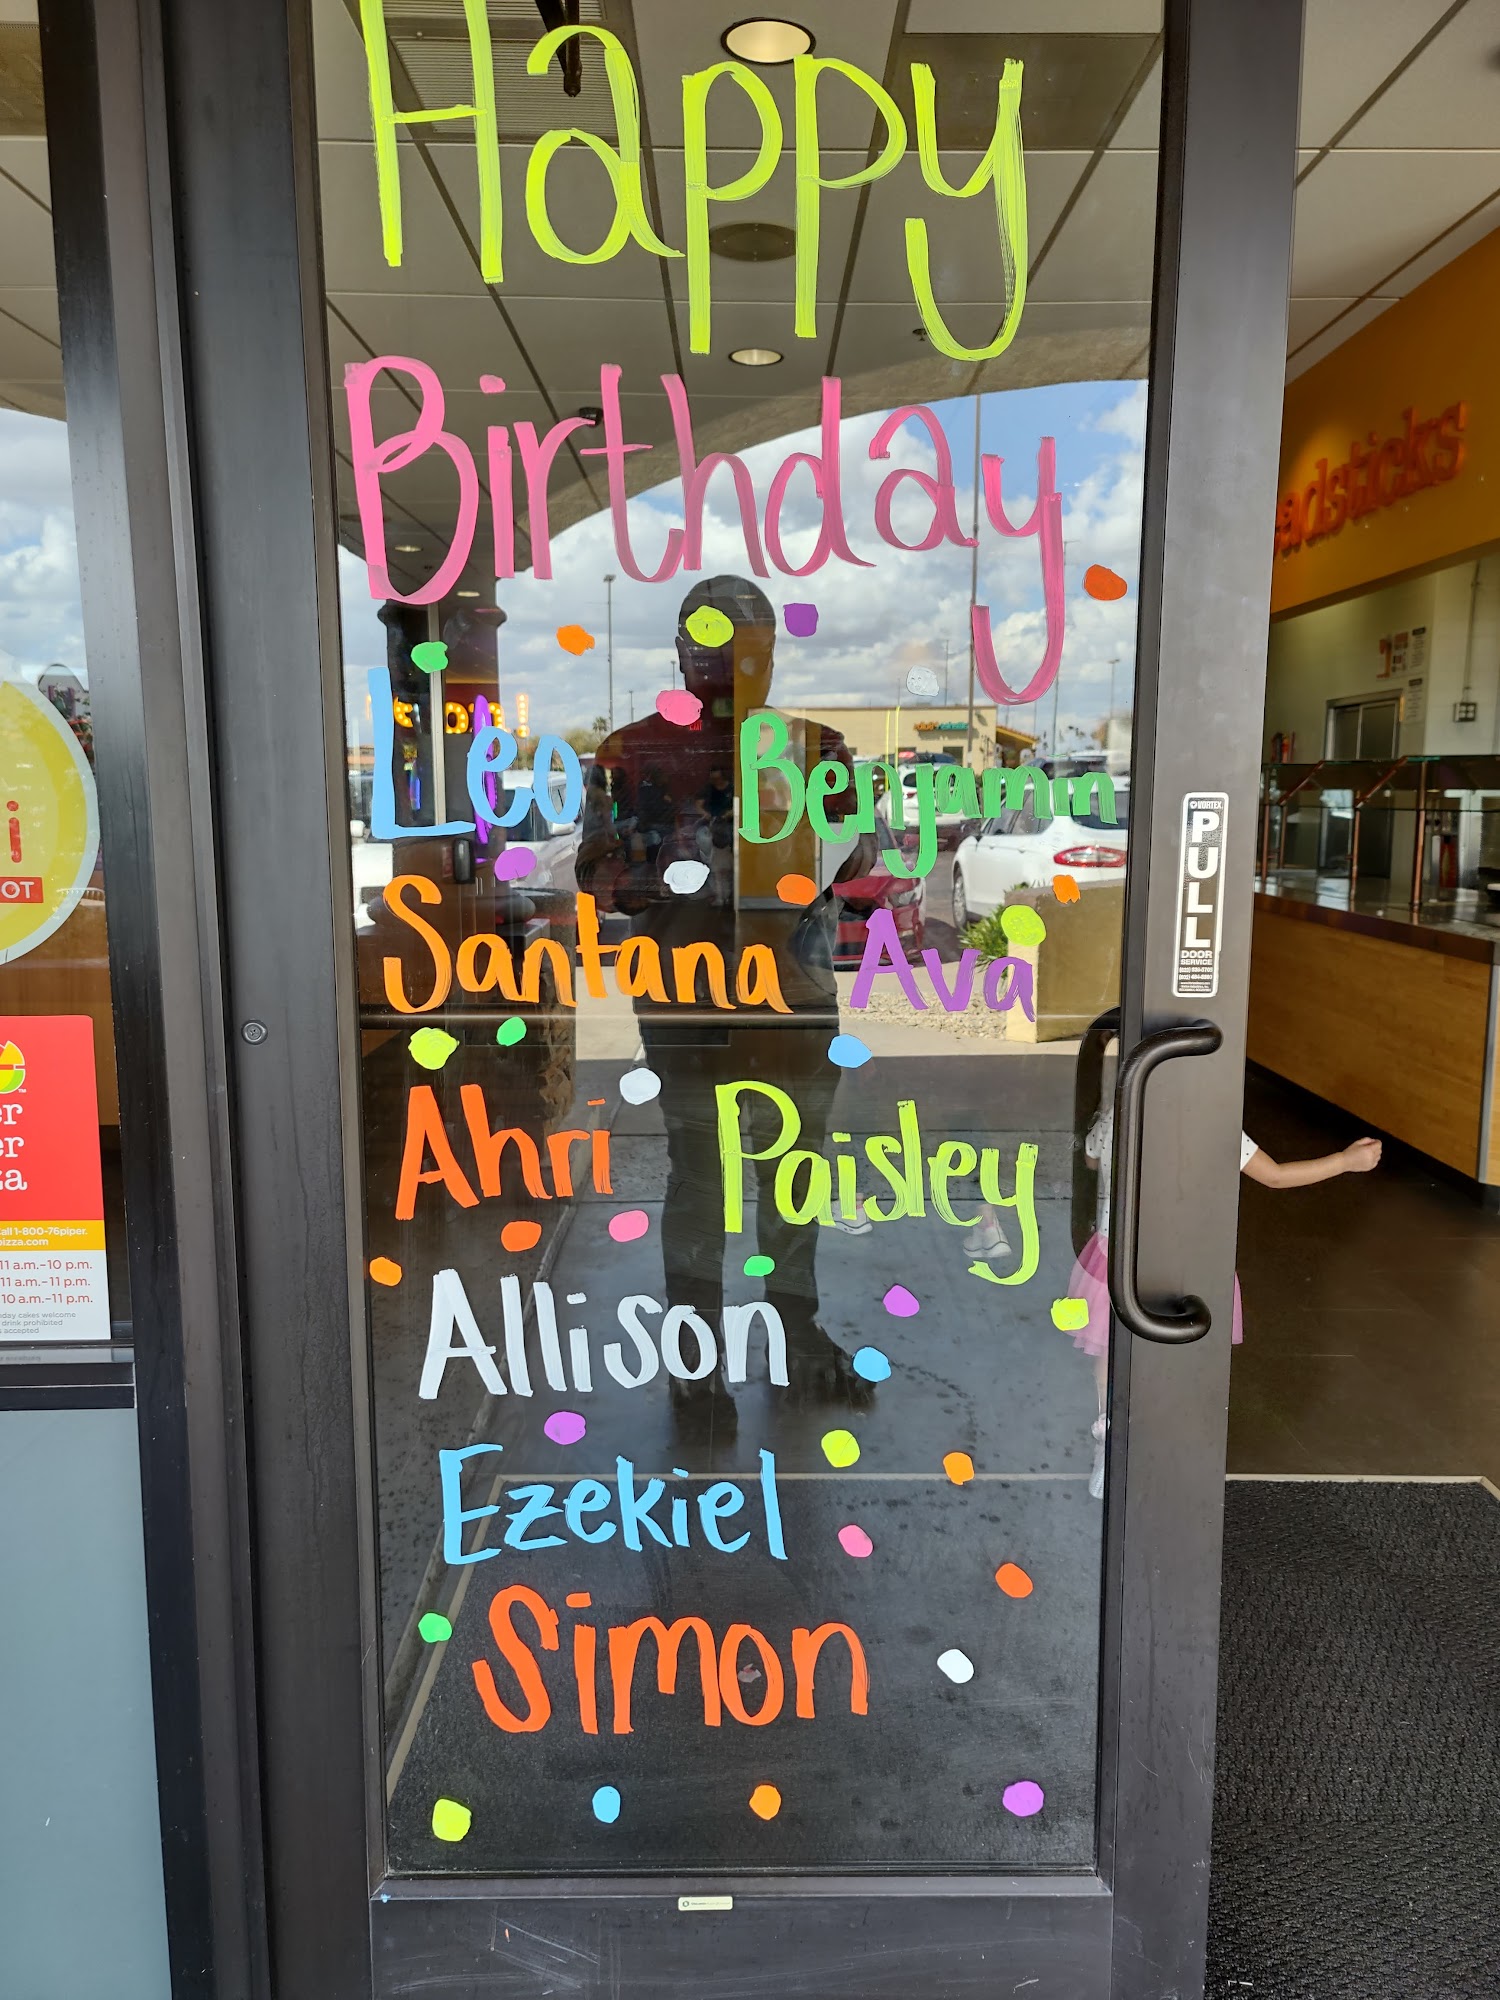 Happy
Birthday
Leo Benjamin
Santana Ava
Ahri Paisley
Allison
Ezekiel
Simon
VORTEX
PULL
DOOR
SERVICE
adsticks
OT
er
er
za
all 1-800-76piper.
pizza.com
11 a.m.-10 p.m.
11 a.m.-11 p.m.
10 a.m.-11 p.m.
day cakes welcome
drink prohibited
accepted